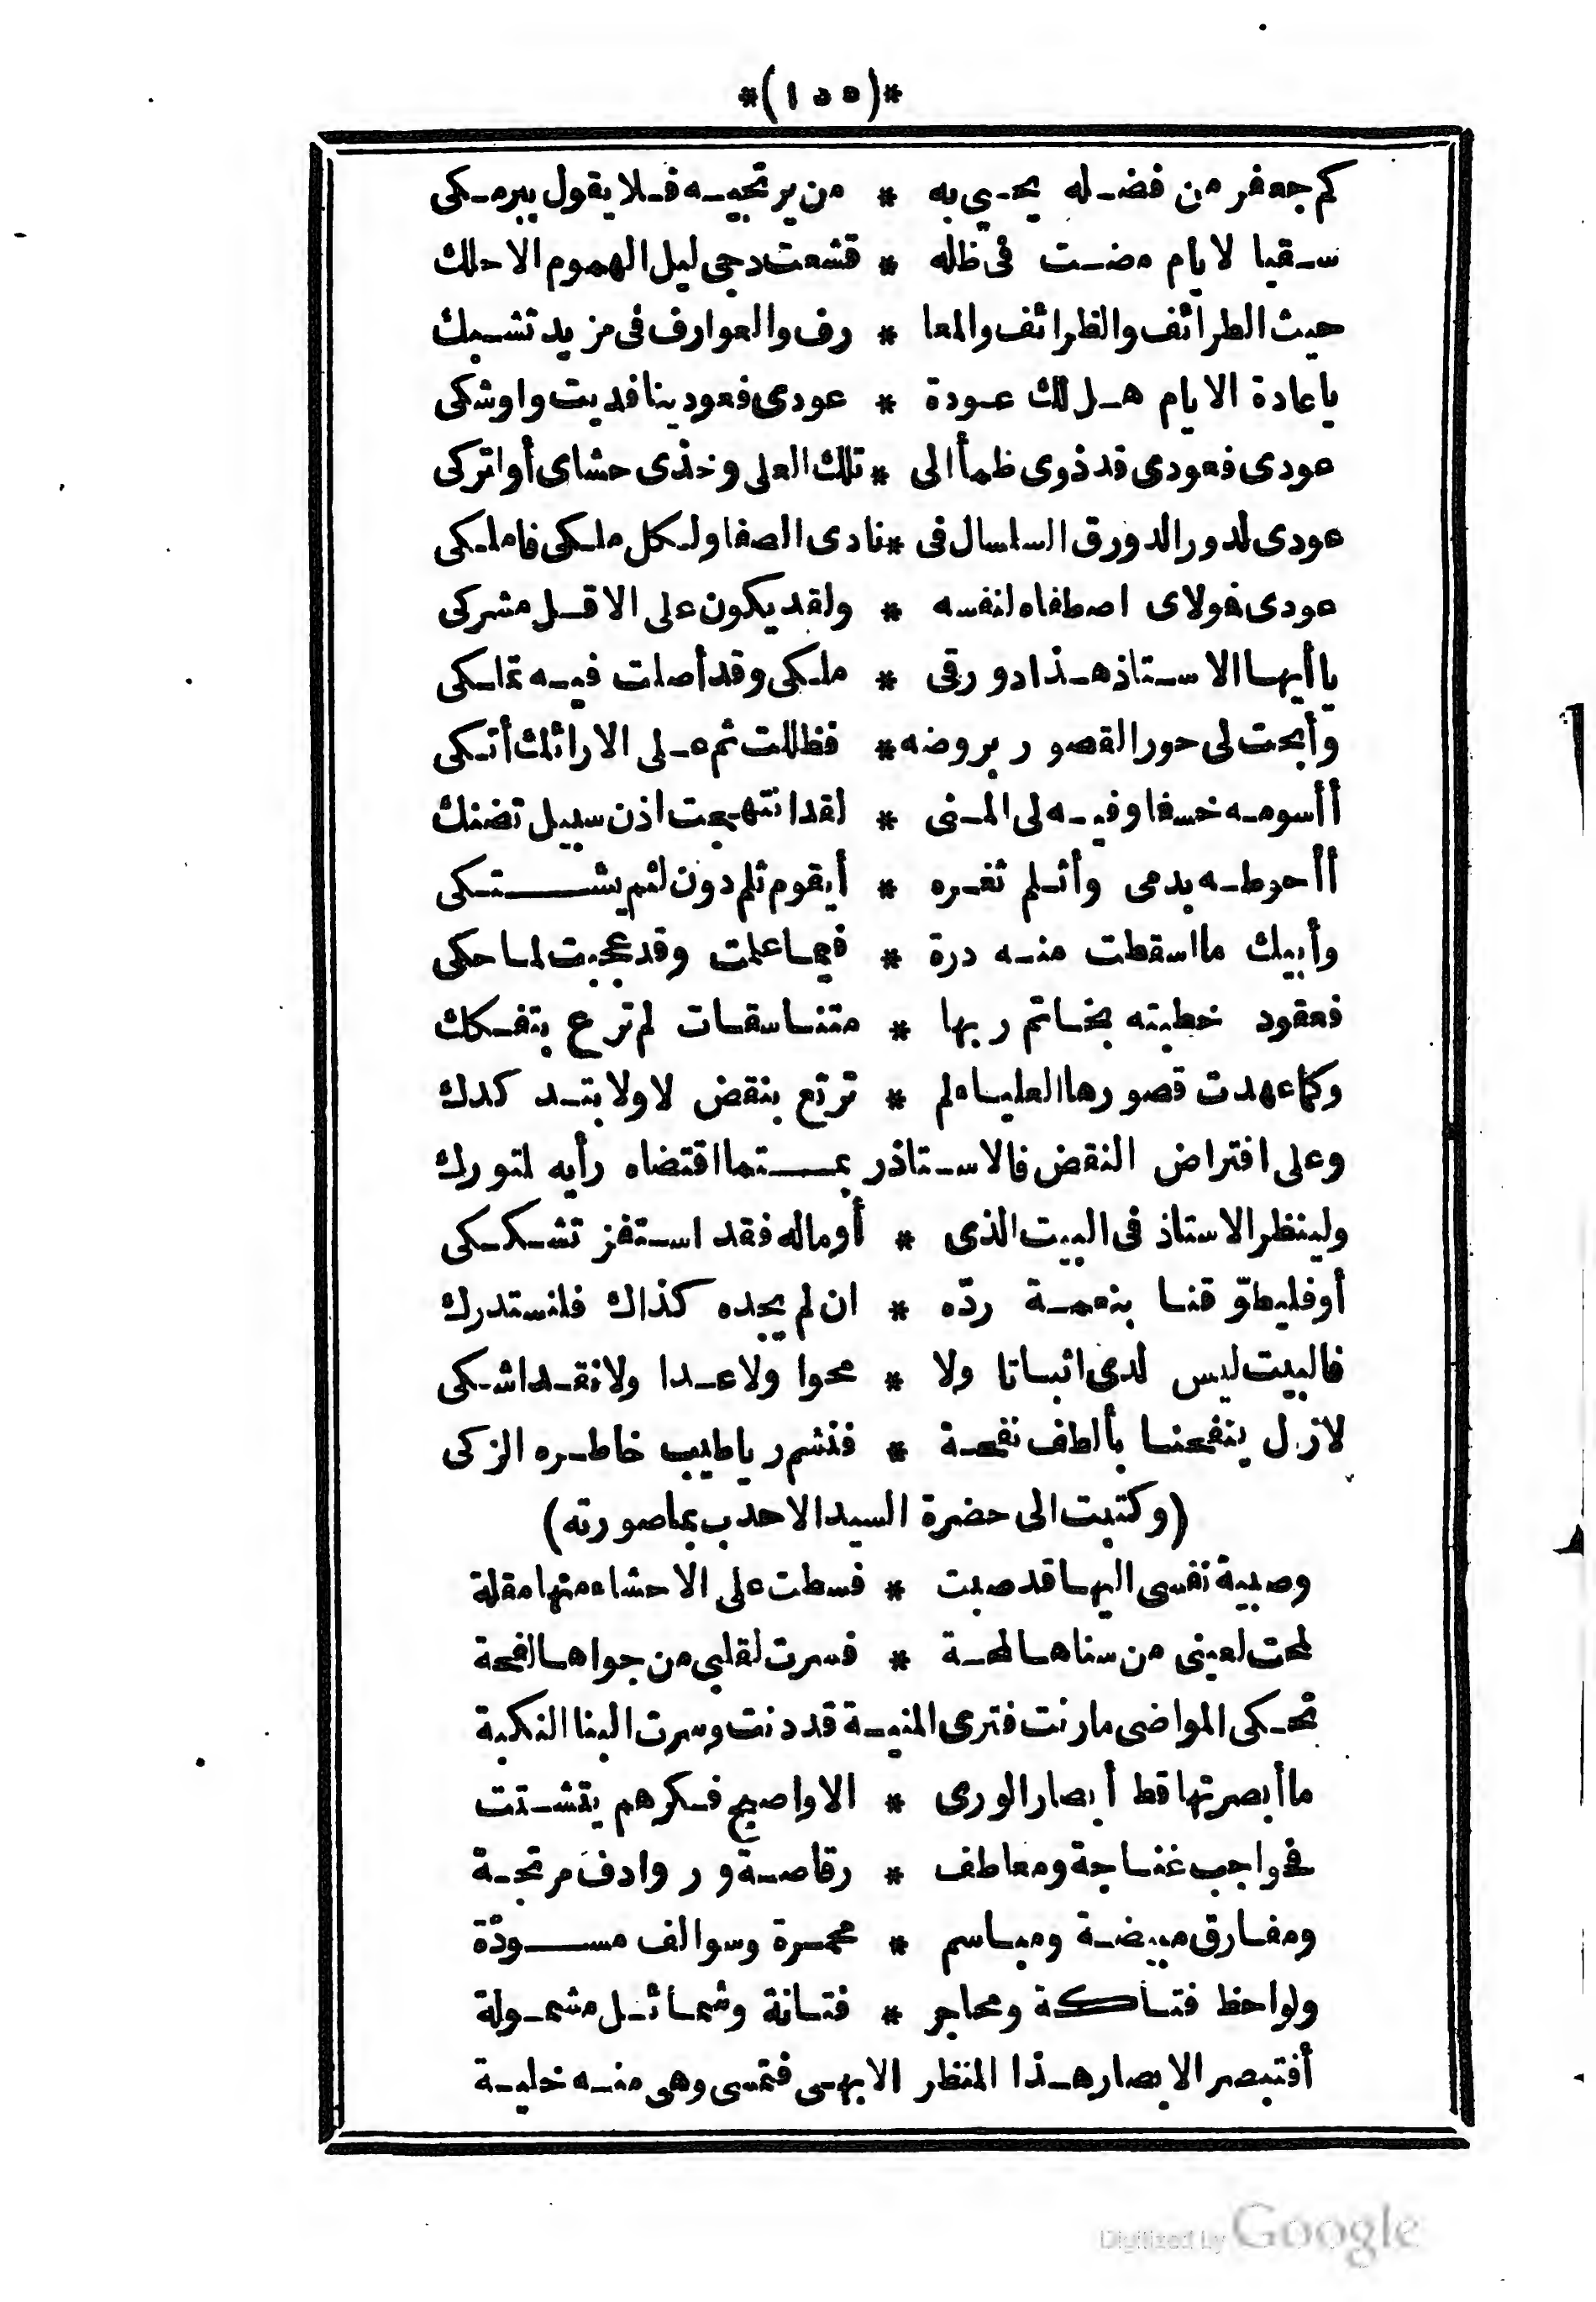 *(١٥٥)*
كم جعفر من فضله يحيي به * من يرتجيه فلا يقول ببرمكى
سقيا لايام مضت فى ظله * قشعت دجى ليل الهموم الاحلك
حيث الطرائف والظرائف والمعا * رف والعوارف فى مزيد تشبك
ياعادة الايام هل لك عودة * عودى فعودينا فديت واوشكى
عودى فعودى قد ذوى ظمأ الى * تلك العلى وخذى حشاى أو اتركى
عودى لدور الدورق السلسال فى * نادى الصفا ولكل ملكى فاملكى
عودى فولاى اصطفاه لنفسه * ولقد يكون على الاقل مشركى
يا أيها الاستاذ هذا دورقى * ملكى وقد أصلت فيه تملكى
وأبحت لى حور القصور بروضه * فظللت ثم على الارائك أتكى
أأسومه خسفا وفيه لى المنى * لقد انتهجت اذن سبيل تضنك
أأحوطه بدمى وأثلم ثغره * أيقوم ثلم دون لثم يشتكى
وأبيك ما اسقطت منه درة * فيما علمت وقد عجبت لما حكى
فعقود خطبته بخاتم ربها * متناسقات لم ترع بتفكك
وكما عهدت قصورها العلياء لم * ترتع بنقض لا ولا بتدكدك
وعلى افتراض النقض فالاستاذ ربمتما اقتضاه رأيه لتورك
ولينظر الاستاذ فى البيت الذى * أوماله فقد استفز تشككى
أو فليطوّقنا بنعمة ردّه * ان لم يجده كذاك فلنستدرك
فالبيت ليس لدى اثباتا ولا * محوا ولا عدا ولا نقد اشكى
لازل ينفحنا بألطف نفحة * فنشم ريا طيب خاطره الزكى
(وكتبت الى حضرة السيد الاحدب بما صورته)
وصبية نفسى اليها قد صبت * فسطت على الاحشاء منها مقلة
لمحت لعينى من سناها لمحة * فسرت لقلبى من جواها لفحة
تحكى المواضى مارنت فترى المنية قد دنت وسرت الينا النكبة
ما أبصرتها قط أبصار الورى * الا وأصبح فكرهم يتشتت
فحواجب غناجة ومعاطف * رقاصة وروادف مرتجة
ومفارق مبيضة ومباسم * محمرة وسوالف مسودّة
ولواحظ فتاكة ومحاجر * فتانة وشمائل مشمولة
أفتبصر الابصار هذا المنظر الابهى فتمسى وهى منه خلية
Digitized by Google